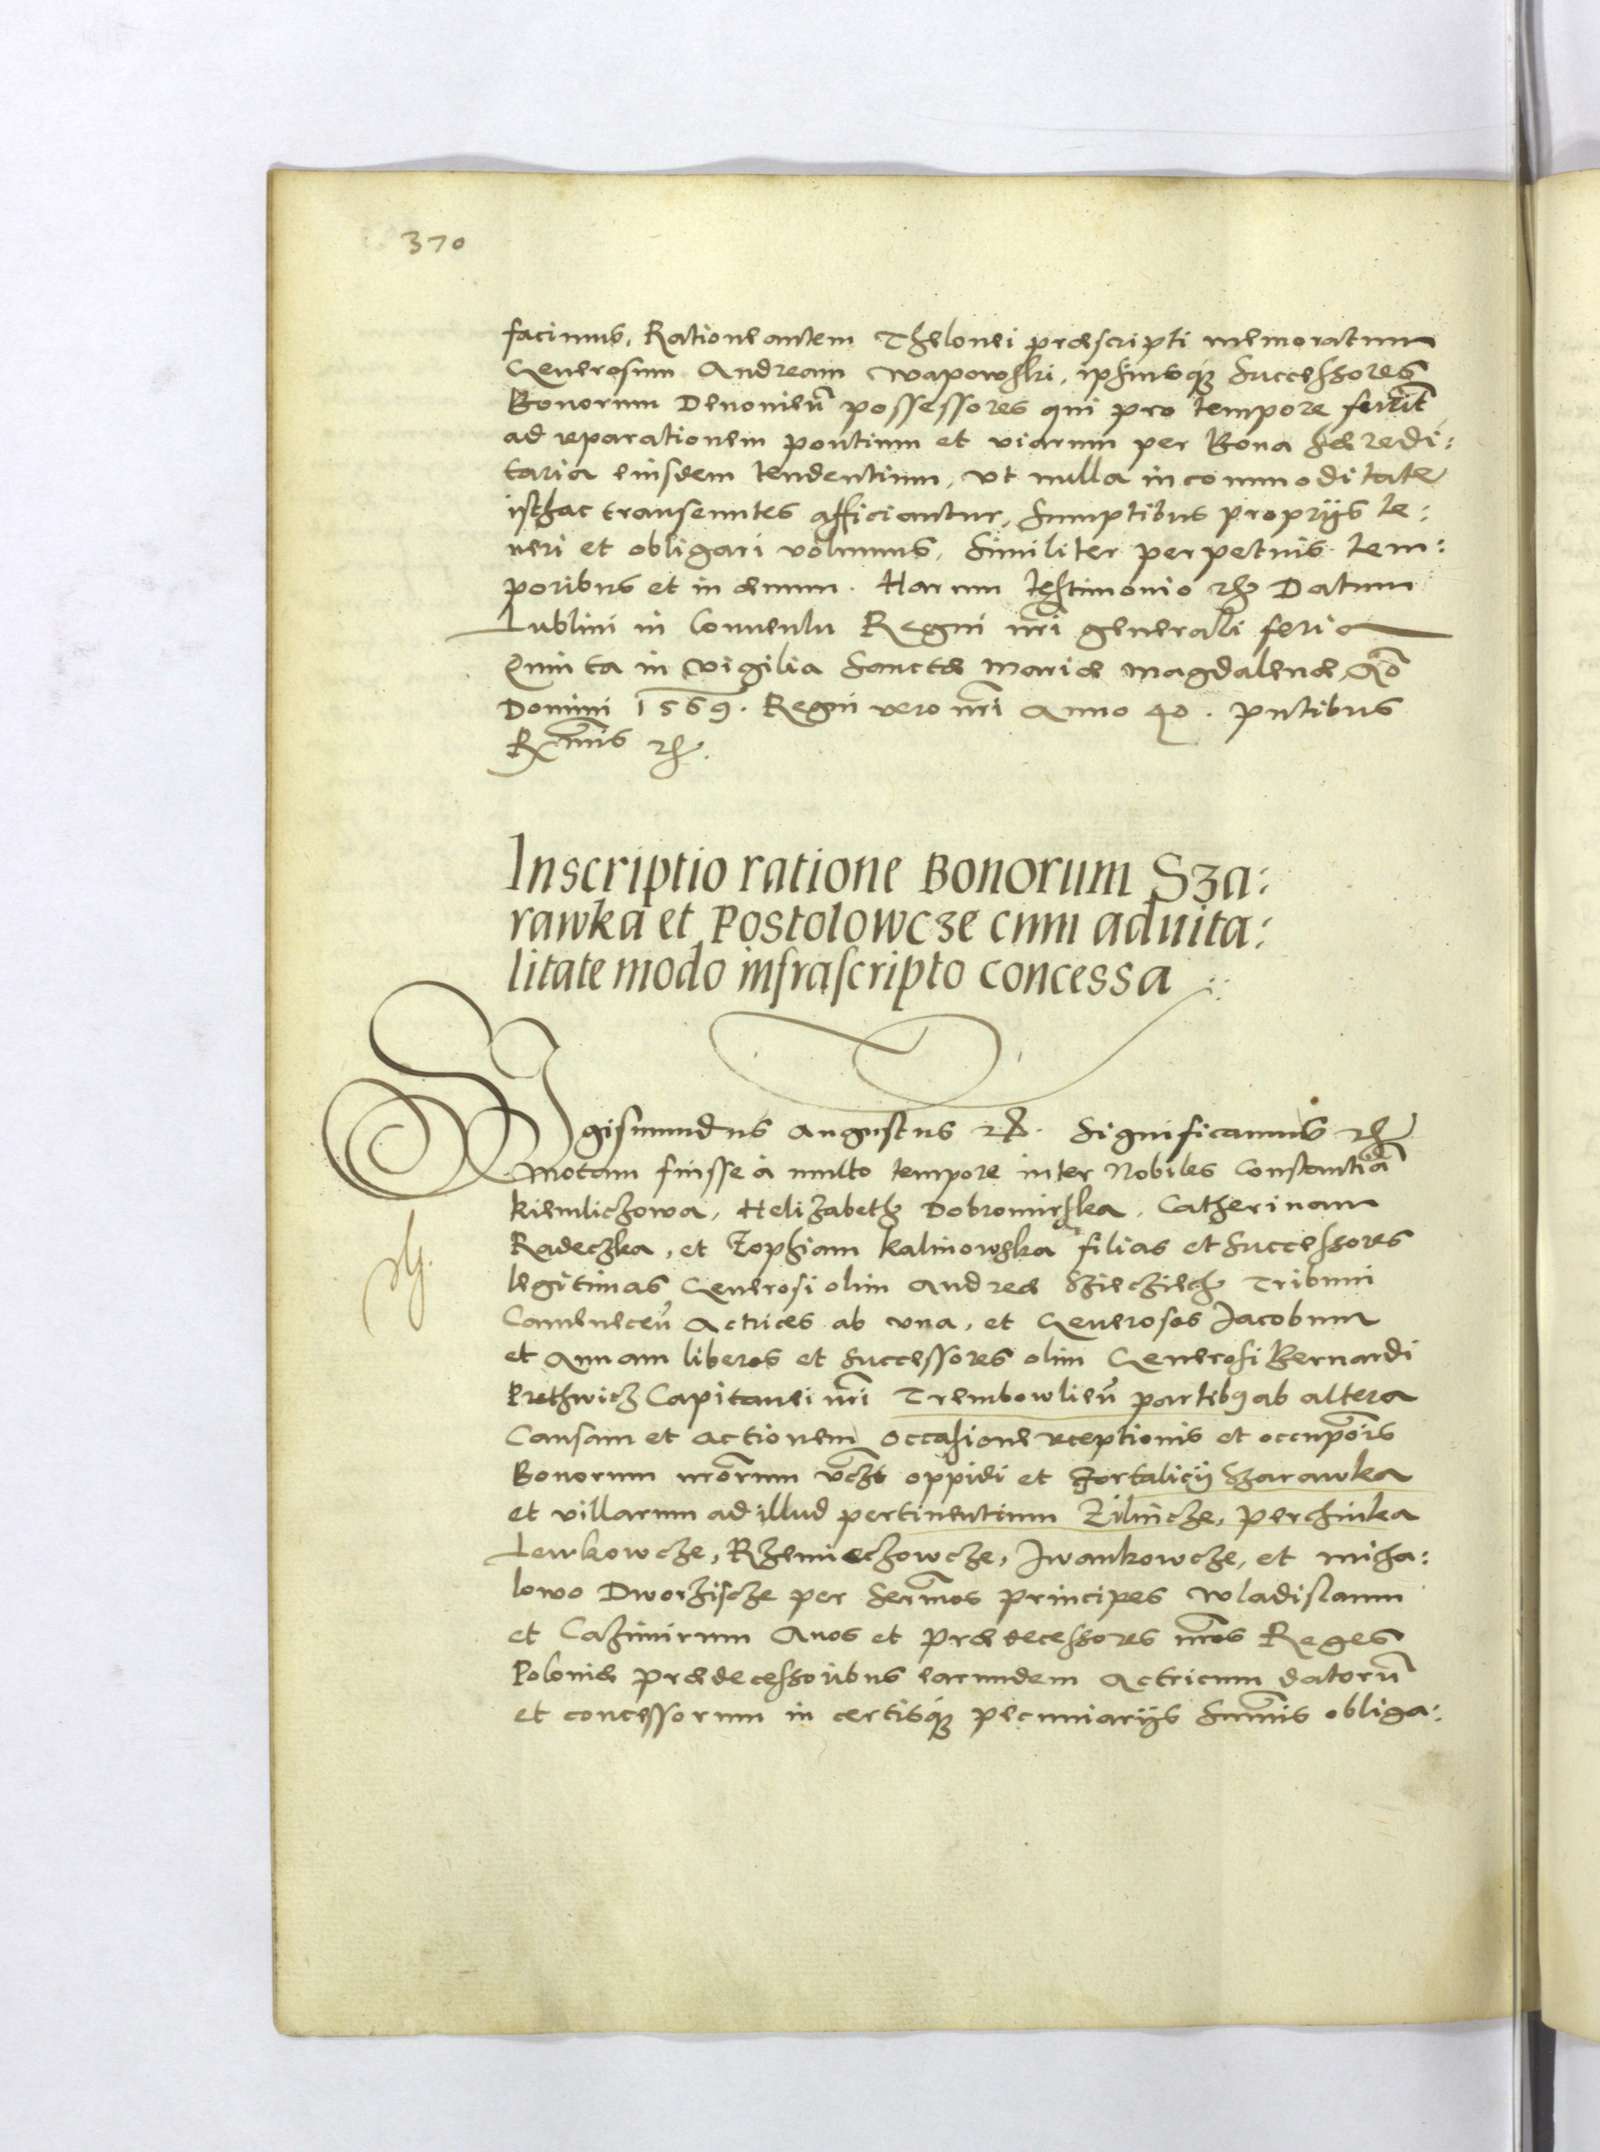 370
facimus, Ratione autem Thelonei præscripti memoratum
Generosum Andream Wapowski, ipsiusq₃ Successores
Bonorum Denovieñ possessores qui pro tempore fuerīt
ad reparationem pontium et viarum per Bona Hæredi:
taria eiusdem tendentium, vt nulla incommoditate
isthac transeuntes afficiantur, Sumptibus proprijs te:
neri et obligari volumus, Similiter perpetuis tem:
poribus et in ævum. Harum testimonio etc Datum
Lublini in Conventu Regni nr̄i generali feria
Quinta in Vigilia Sanctæ Mariæ Magdalenæ, Aō
Domini 1569. Regni vero nr̄i Anno 40. pn̄tibus
Rx̄mis etc.
Inscriptio ratione Bonorum Sza:
rawka et Postolowcze cum advita:
litate modo infrascripto concessa
Sigismundus Augustus etc. Significamus etc
Motam fuisse à multo tempore inter Nobiles Constantiā
Kiemliczowa, Helizabeth Dobromirska, Catherinam
Radeczka, et Zophiam Kalinowska filias et Successores
legitimas Generosi olim Andreæ Tribuni
Cameneceñ Actrices ab vna, et Generosos Jacobum
et Annam liberos et Successores olim Generosi Bernardi
Prethwicz Capitanei nr̄i Trembowlieñ partibꝯ ab altera
Causam et Actionem occasione receptionis et occupōnis
Bonorum nr̄orum vcz̄t oppidi et Fortalicij Szarawka
et villarum ad illud pertinentium Zilincze, Perchinka
Lewkowcze, Rzemieczowcze, Jwankowcze, et Micha:
lowo Dworziscze per Serm̄os Principes Wladislaum
et Cazimirum Avos et Prædecessores nr̄os Reges
Poloniæ prædecessoribus earundem Actricum datorū
et concessorum in certisq₃ pecuniarijs Sum̄is obliga: